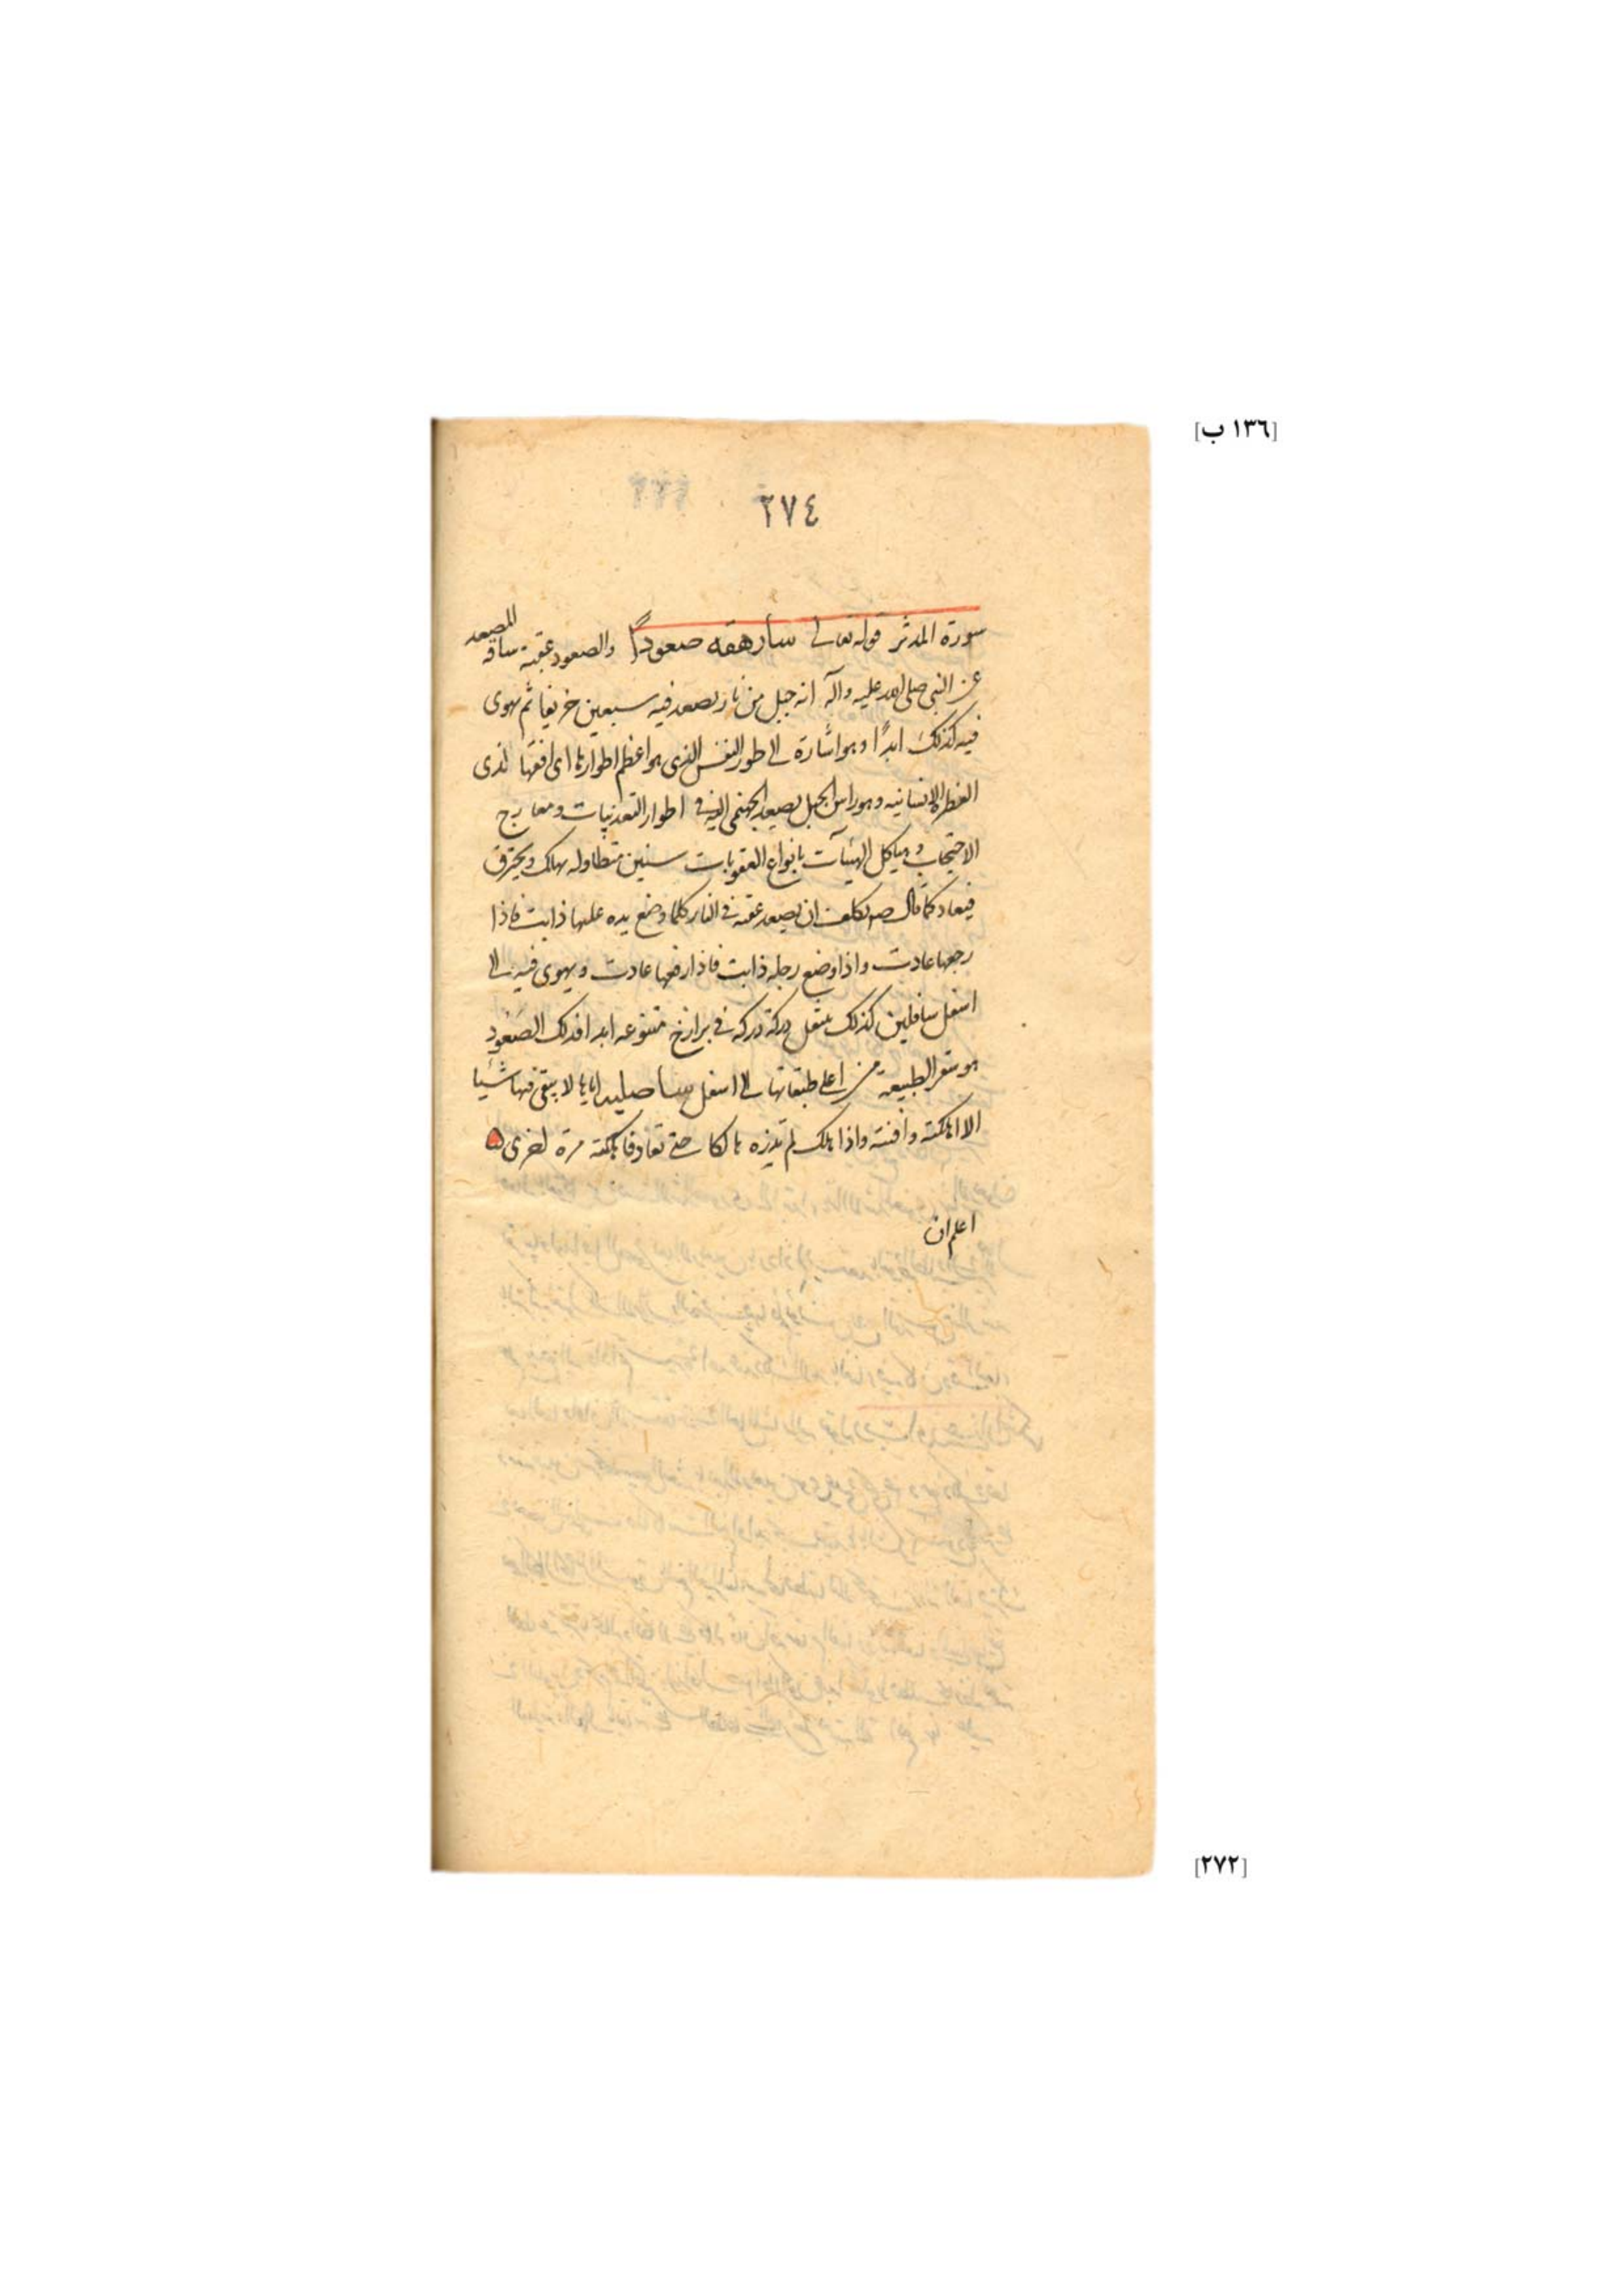 [١٣٦ ب]
٢٧٤
سورة المدثر قوله تعالى سأرهقه صعوداً والصعود عقبة شاقة المصعد
عن النبي صلى الله عليه وآله انه جبل من نار يصعد فيه سبعين خريفا ثم يهوى
فيه كذلك ابدًا وهو اشارة الى طور النفس الذى هو اعظم اطوارها اى افقها الذى
الفطرة الانسانيه وهو راس الجبل يصعد الجهنمى اليه فى اطوار التعذيبات ومعارج
الاحتجاب وهياكل الهيئآت بانواع العقوبات سنين متطاوله يهلك ويحترق
فيعاد كما قال ص يكلف ان يصعد عقبه فى النار كلما وضع يده عليها ذابت فاذا
رجعها عادت واذا وضع رجله ذابت فاذا رفعها عادت ويهوى فيه الى
اسفل سافلين كذلك ينتقل دركة دركه فى برازخ متنوعه ابدا فذلك الصعود
هو سقر الطبيعة من اعلى طبقاتها الى اسفل اياها لا يبقى فيها شيئا
الا اهلكته وافنته واذا هلك لم تذره هالكا حتى تعاد فاهلكته مرة اخرى
اعلم ان
[٢٧٢]